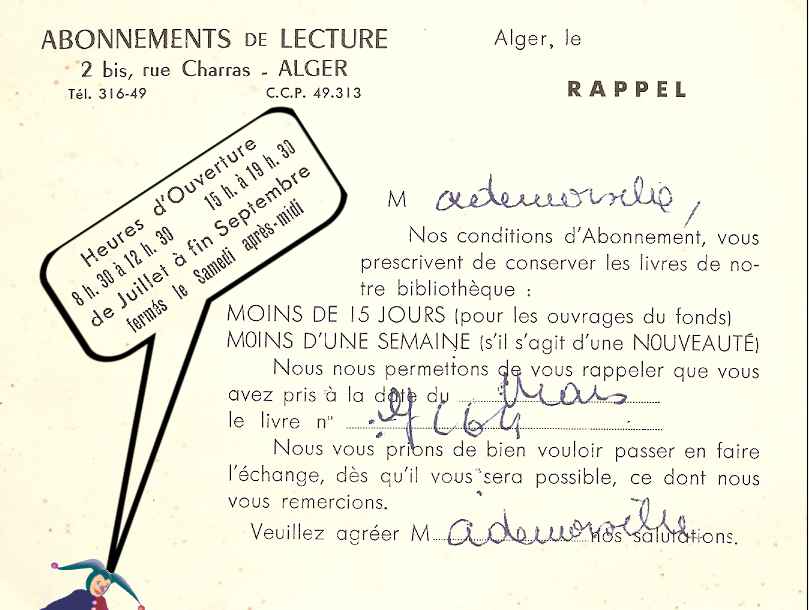 ABONNEMENTS DE LECTURE
2 bis, rue Charras - ALGER
Tél. 316-49 C.C.P. 49.313
Alger, le
RAPPEL
Heures d'Ouverture
8 h. 30 à 12 h. 30 15 h. à 19 h. 30
de Juillet à fin Septembre
fermés le Samedi après-midi
M ademoiselle,
Nos conditions d'Abonnement, vous
prescrivent de conserver les livres de no-
tre bibliothèque :
MOINS DE 15 JOURS (pour les ouvrages du fonds)
MOINS D'UNE SEMAINE (s'il s'agit d'une NOUVEAUTÉ)
Nous nous permettons de vous rappeler que vous
avez pris à la date du Mars
le livre n°
Nous vous prions de bien vouloir passer en faire
l'échange, dès qu'il vous sera possible, ce dont nous
vous remercions.
Veuillez agréer M ademoiselle nos salutations.